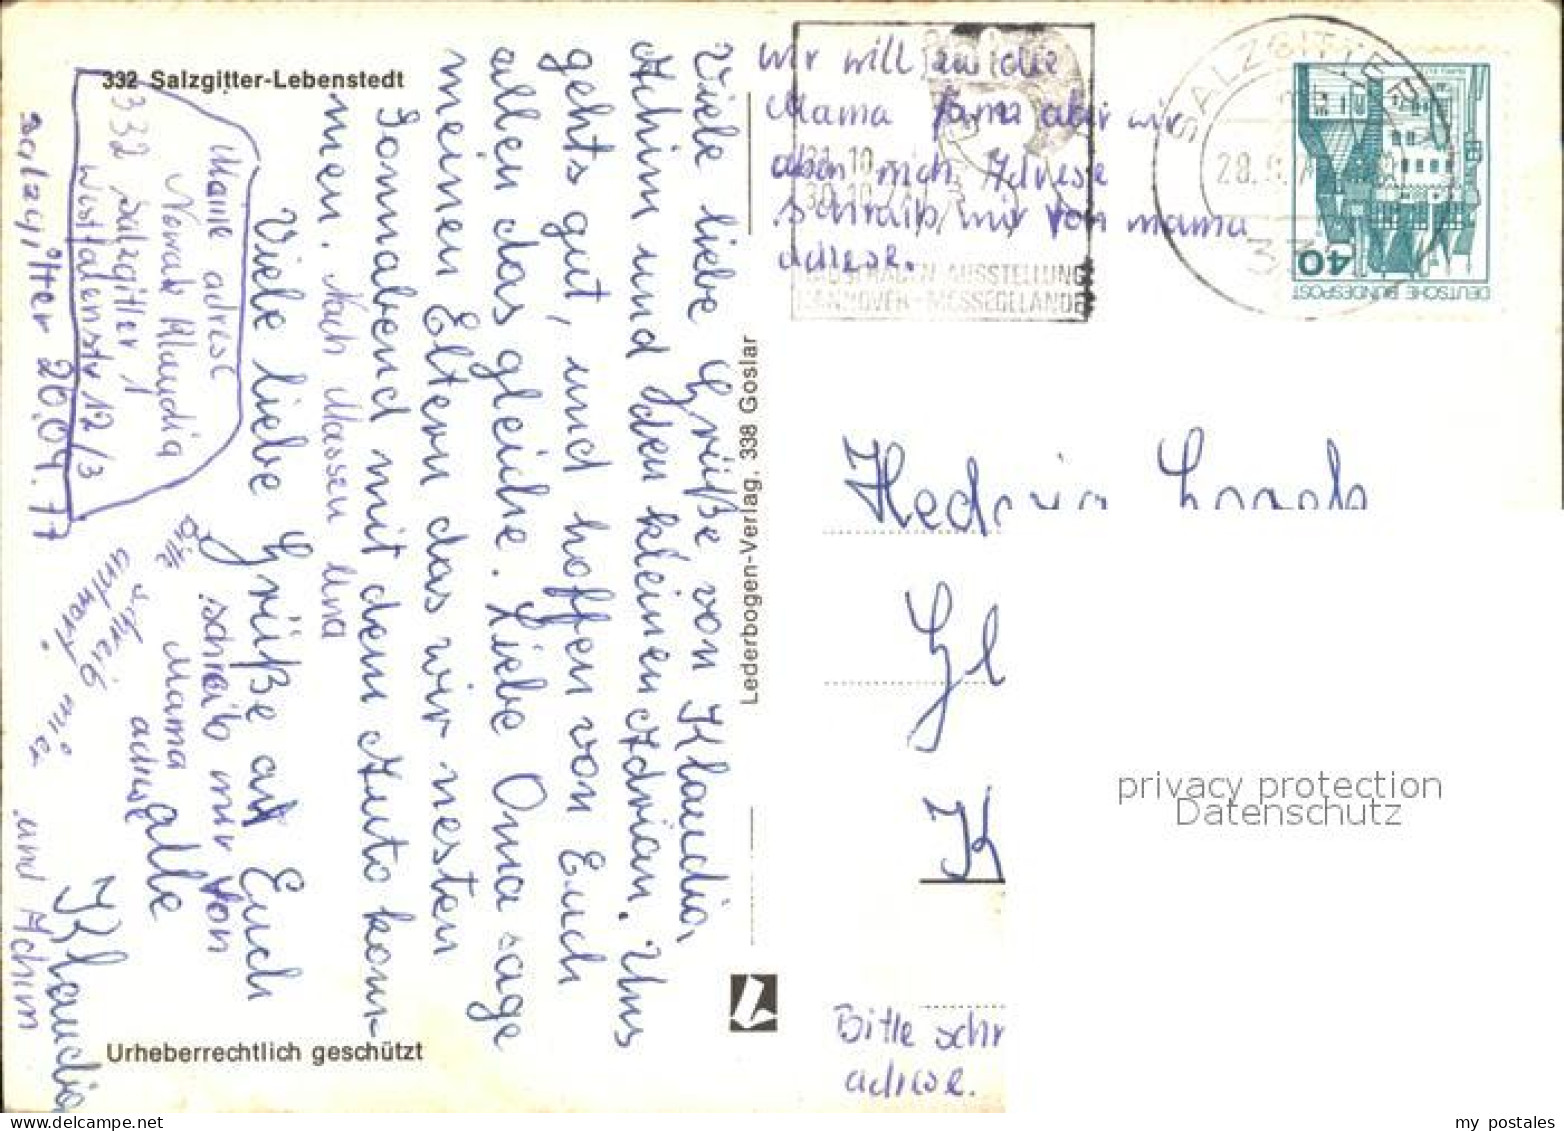 332 Salzgitter-Lebenstedt
Salzgitter 20.09.77
Maine adrese
Nowak Klaudia
332 Salzgitter 1
Westfalenstr 12/3
Viele liebe Grüße von Klaudia
Achim und den kleinen Adrian. Uns
gehts gut, und hoffen von Euch
allen das gleiche. Liebe Oma sage
meinen Eltern das wir nesten
Sonnabend mit dem Auto kom-
men. Nach Massen Una
Viele liebe Grüße an Euch
alle
Klaudia
und Achim
Bitte schreib mir von
Mama
adrese
bitte schreib mir
antwort.
Urheberrechtlich geschützt
Lederbogen-Verlag, 338 Goslar
wir will an die
Mama aber wir
aben nich Adrese
Schraib mir von mama
adrese.
21.10.
30.10.
HAUSFRAUEN-AUSSTELLUNG
HANNOVER-MESSEGELÄNDE
SALZGITTER
DEUTSCHE BUNDESPOST
40
Hedwig
Gl
K
Bitte schr
adrese.
privacy protection
Datenschutz
my postales